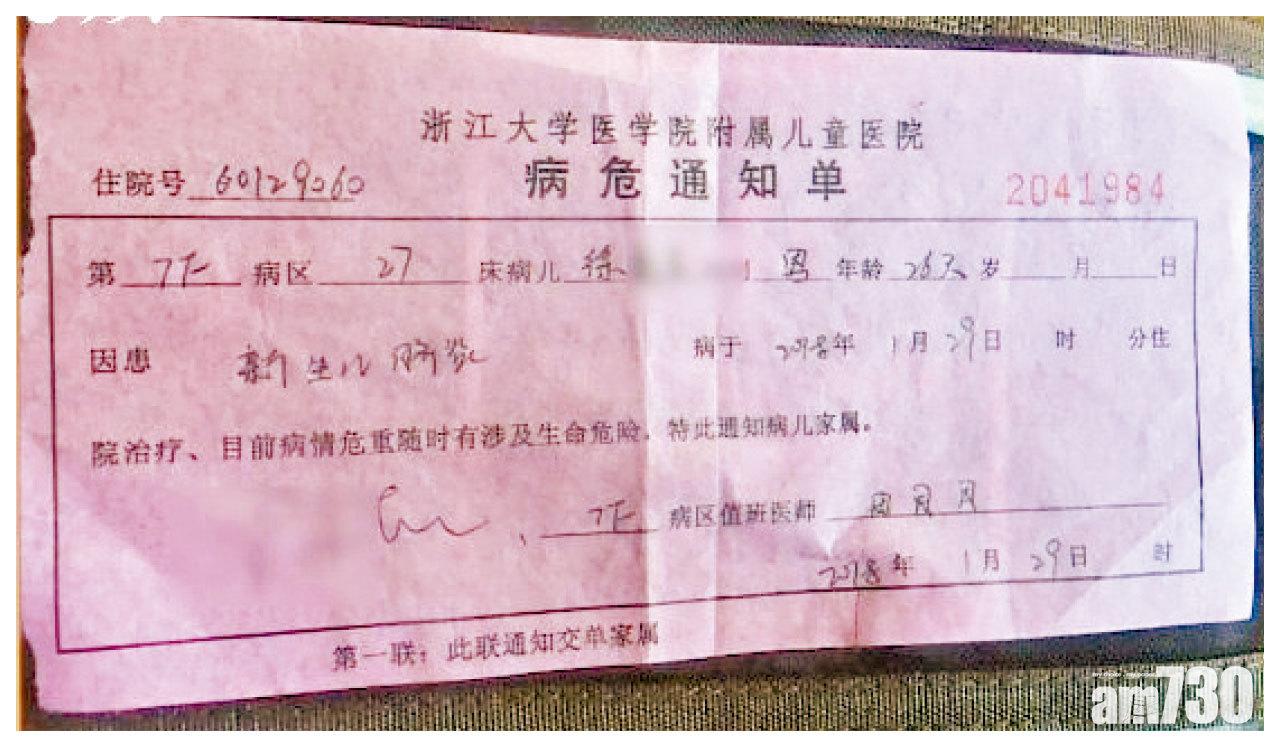 浙江大学医学院附属儿童医院
住院号 60129060 病危通知单 2041984
第 7F 病区 27 床病儿 徐 男 年龄 26天 岁 月 日
因患 新生儿肺炎 病于 2018年 1月 29日 时 分住
院治疗、目前病情危重随时有涉及生命危险，特此通知病儿家属。
7F 病区值班医师
2018年 1月 29日 时
第一联：此联通知交单家属
am730